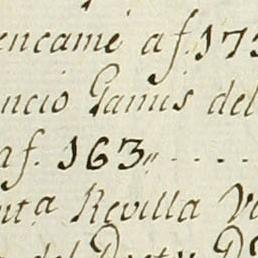 encamé af. 173
ncio Gamis del
af. 163,, . . . .
nta Revilla V
del Doctr. D